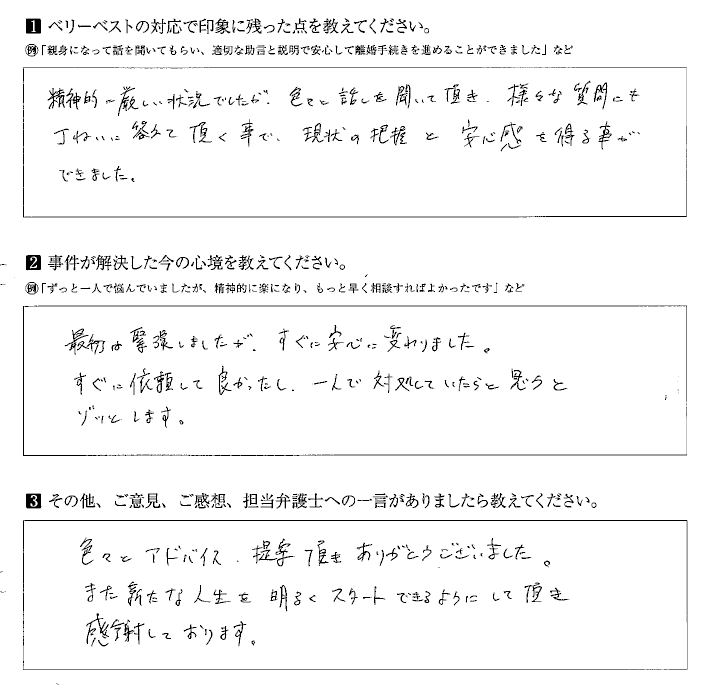 1 ベリーベストの対応で印象に残った点を教えてください。
例「親身になって話を聞いてもらい、適切な助言と説明で安心して離婚手続きを進めることができました」など
精神的に厳しい状況でしたが、色々と話しを聞いて頂き、様々な質問にも
丁ねいに答えて頂く事で、現状の把握と安心感を得る事が
できました。
2 事件が解決した今の心境を教えてください。
例「ずっと一人で悩んでいましたが、精神的に楽になり、もっと早く相談すればよかったです」など
最初は緊張しましたが、すぐに安心に変わりました。
すぐに依頼して良かったし、一人で対処していたらと思うと
ゾッとします。
3 その他、ご意見、ご感想、担当弁護士への一言がありましたら教えてください。
色々とアドバイス、提案頂きありがとうございました。
また新たな人生を明るくスタートできるようにして頂き
感謝しております。